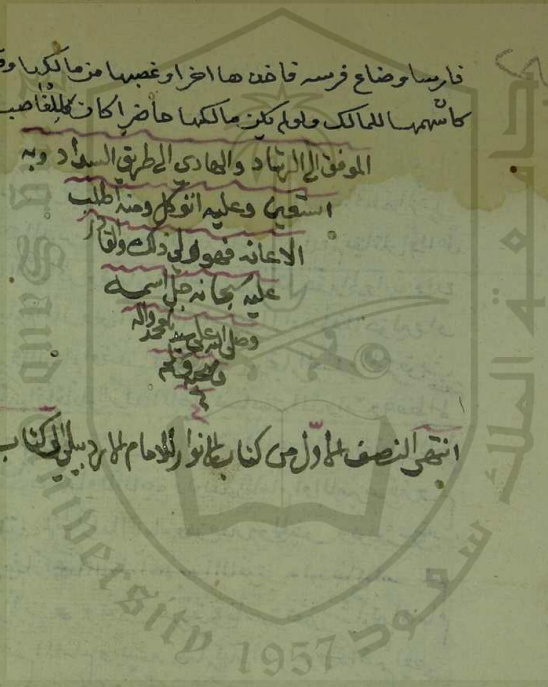 فارسا وضاع فرسه فاخذها اخر او غصبها من مالكها
كاسهمها للمالك ولو لم يكن مالكها حاضرا كان للغاصب
الموفق الى الرشاد والهادي الى طريق السداد وبه
استعين وعليه اتوكل ومنه اطلب
الاعانه فهو ولي ذلك والقادر
عليه سبحانه جل اسمه
وصلى الله على سيدنا محمد واله
وصحبه وسلم
انتهى النصف الاول من كتاب الانوار للامام الاردبيلي الى كتاب
جامعة الملك سعود
King Saud University 1957